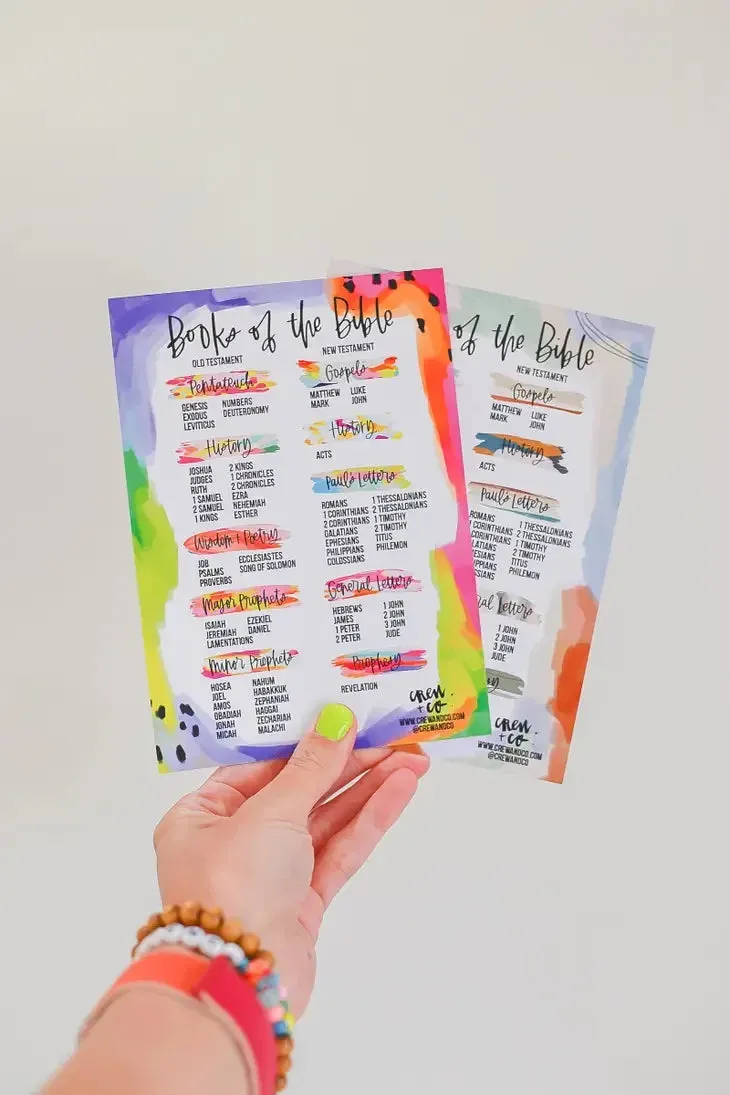 Books of the Bible
OLD TESTAMENT
Pentateuch
GENESIS NUMBERS
EXODUS DEUTERONOMY
LEVITICUS
History
JOSHUA 2 KINGS
JUDGES 1 CHRONICLES
RUTH 2 CHRONICLES
1 SAMUEL EZRA
2 SAMUEL NEHEMIAH
1 KINGS ESTHER
Wisdom + Poetry
JOB ECCLESIASTES
PSALMS SONG OF SOLOMON
PROVERBS
Major Prophets
ISAIAH EZEKIEL
JEREMIAH DANIEL
LAMENTATIONS
Minor Prophets
HOSEA NAHUM
JOEL HABAKKUK
AMOS ZEPHANIAH
OBADIAH HAGGAI
JONAH ZECHARIAH
MICAH MALACHI
NEW TESTAMENT
Gospels
MATTHEW LUKE
MARK JOHN
History
ACTS
Paul's Letters
ROMANS 1 THESSALONIANS
1 CORINTHIANS 2 THESSALONIANS
2 CORINTHIANS 1 TIMOTHY
GALATIANS 2 TIMOTHY
EPHESIANS TITUS
PHILIPPIANS PHILEMON
COLOSSIANS
General Letters
HEBREWS 1 JOHN
JAMES 2 JOHN
1 PETER 3 JOHN
2 PETER JUDE
Prophesy
REVELATION
crew
+ co.
WWW.CREWANDCO.COM
@CREWANDCO
of the Bible
NEW TESTAMENT
Gospels
MATTHEW LUKE
MARK JOHN
History
ACTS
Paul's Letters
ROMANS 1 THESSALONIANS
CORINTHIANS 2 THESSALONIANS
CORINTHIANS 1 TIMOTHY
2 TIMOTHY
TITUS
PHILEMON
Letters
1 JOHN
2 JOHN
3 JOHN
JUDE
crew
+ co.
WWW.CREWANDCO.COM
@CREWANDCO